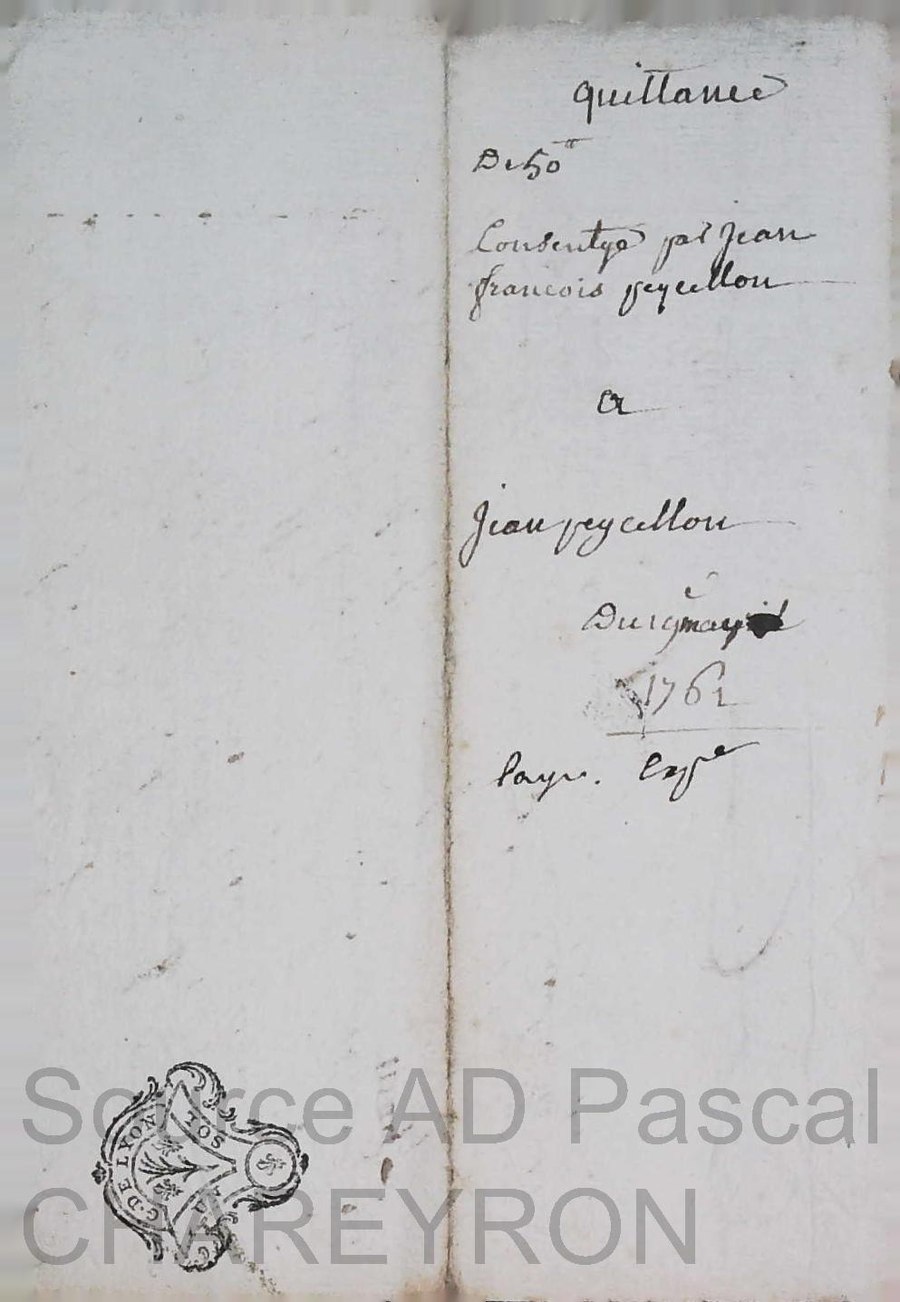 quittance
De 50ᵗᵗ
Consentye par Jean
francois peycellon
a
Jean peycellon
Du 19 may
1761
paye. Exp^e
G. DE LYON
SOL
Source AD Pascal
CHAREYRON